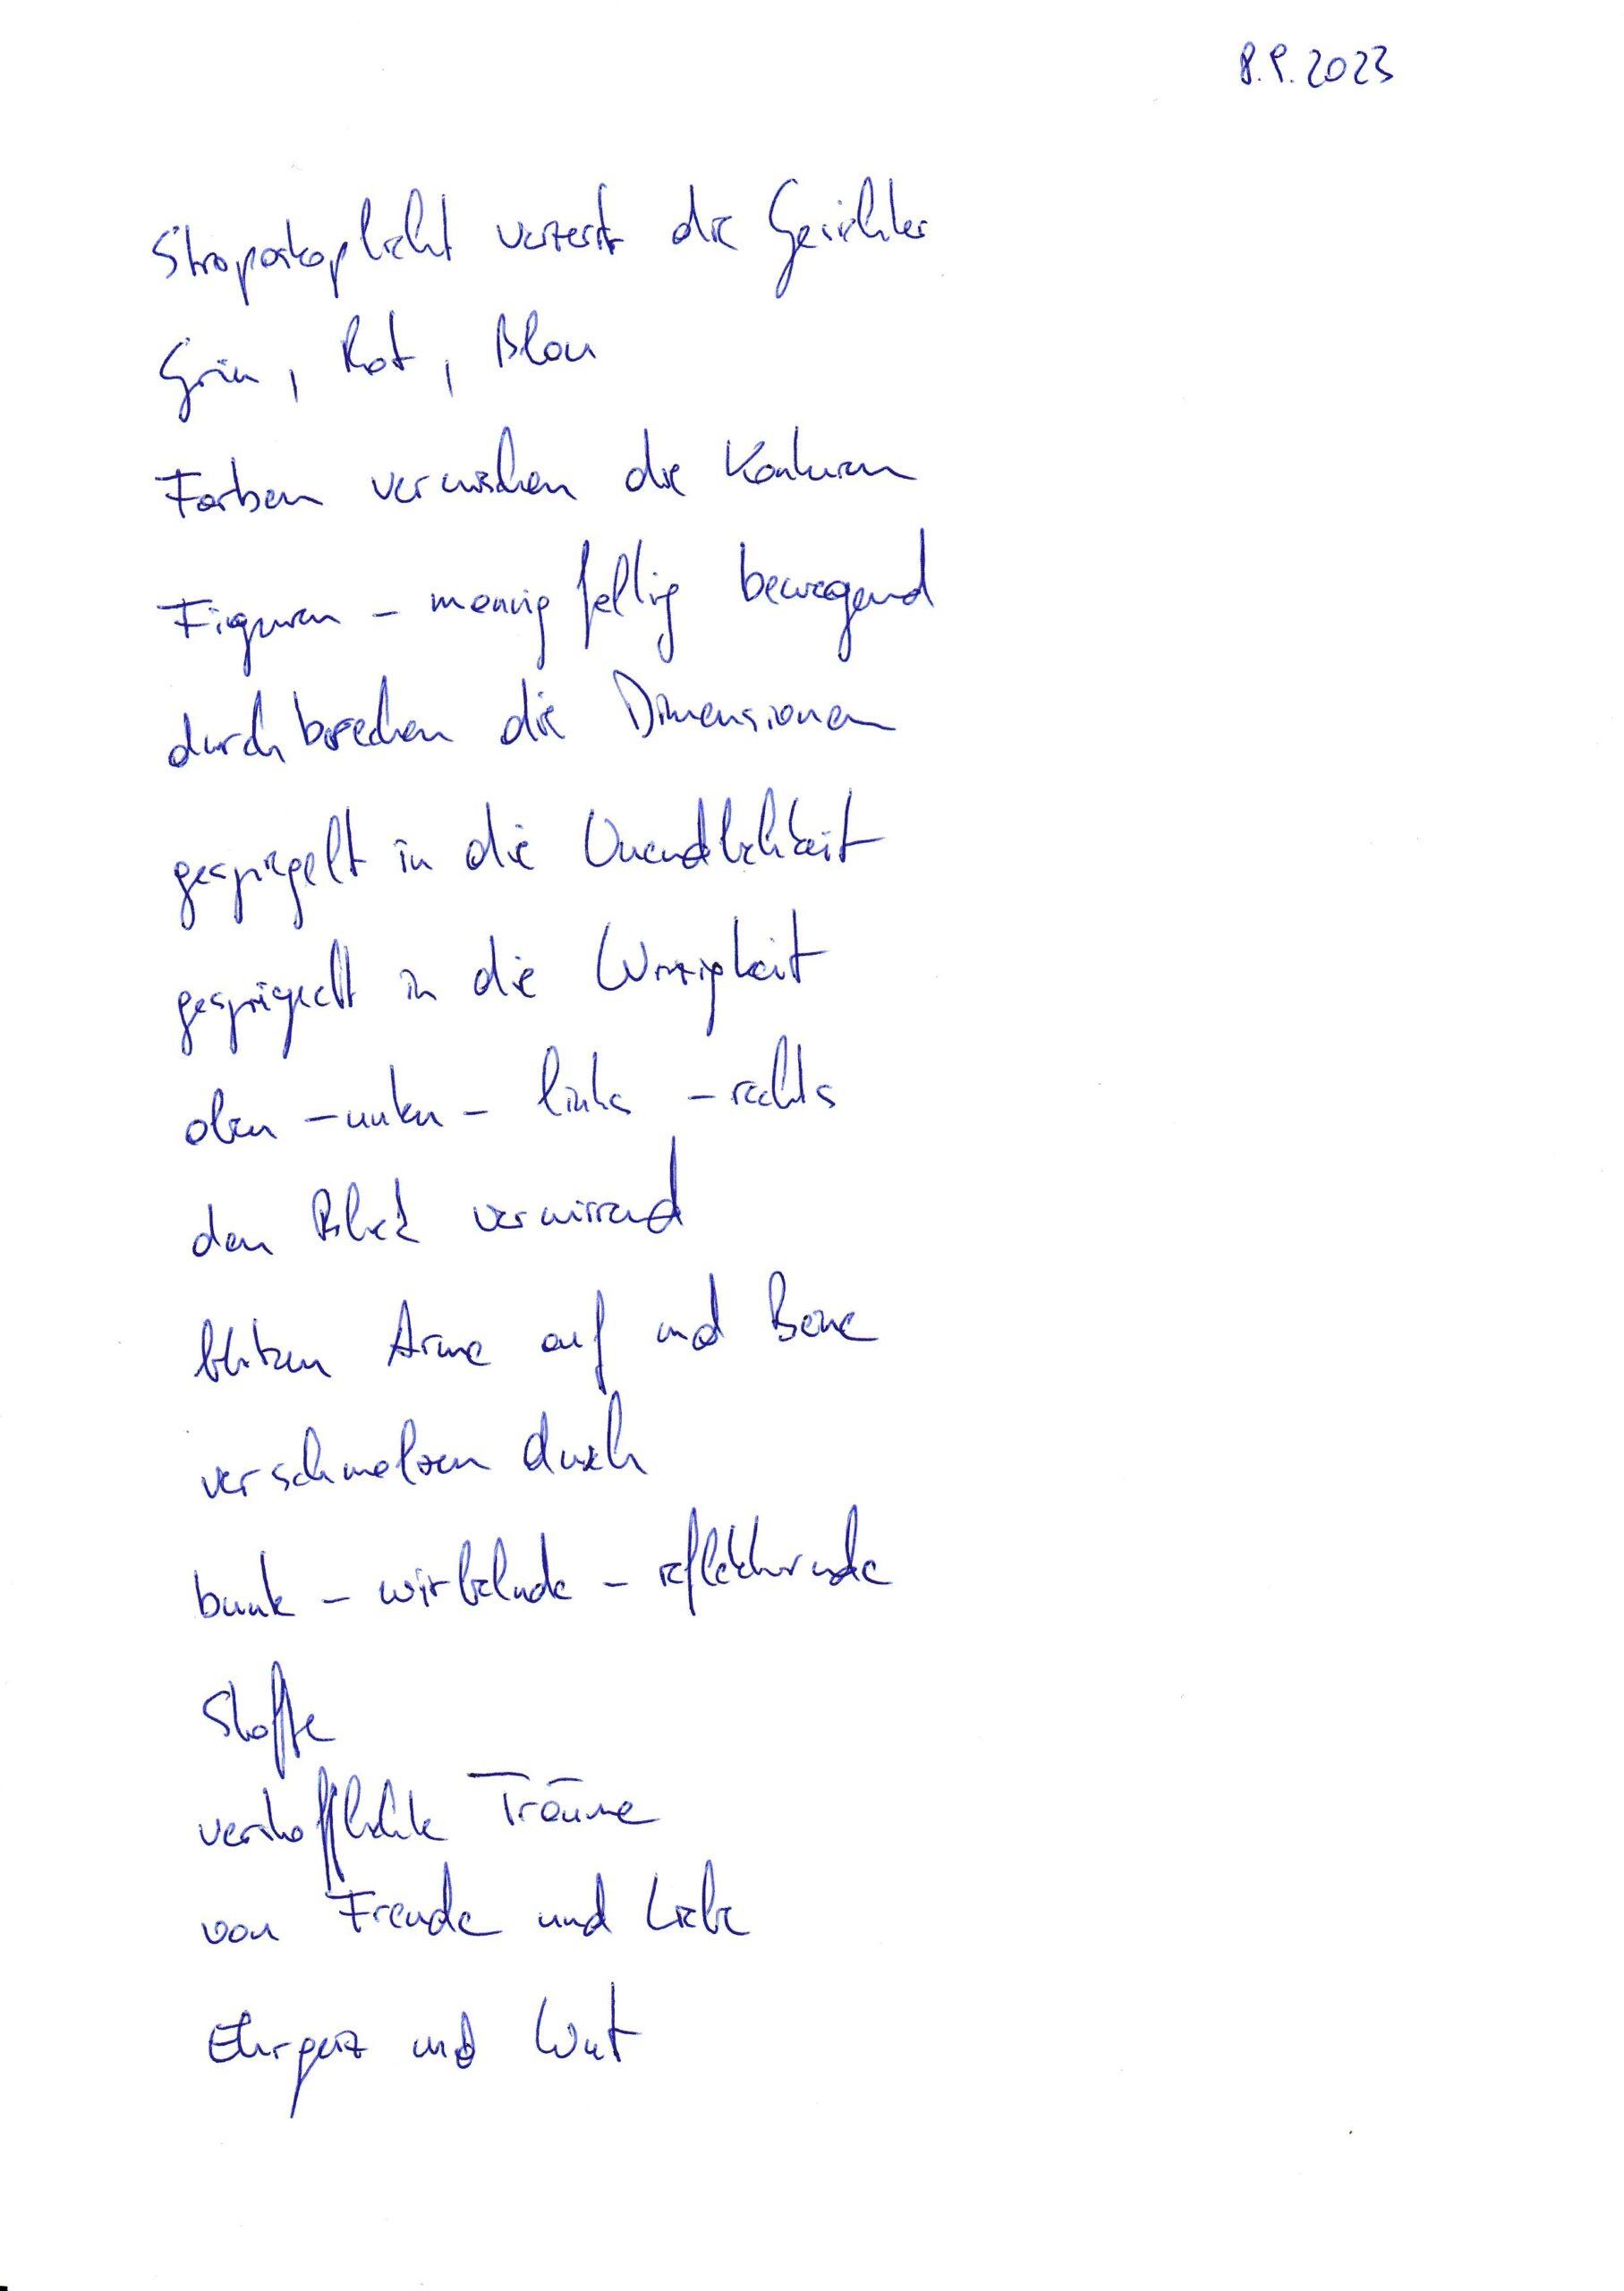 8.9.2023
Stroposkoplicht verzerrt die Gesichter
Grün, Rot, Blau
Farben verwischen die Konturen
Figuren - mannigfaltig bewegend
durchbrechen die Dimensionen
gespiegelt in die Unendlichkeit
gespiegelt in die Winzigkeit
oben - unten - links - rechts
den Blick verwirrend
blitzen Arme auf und Beine
verschmelzen durch
bunte - wirbelnde - reflektierende
Stoffe
verstofflichte Träume
von Freude und Liebe
Ehrgeiz und Wut